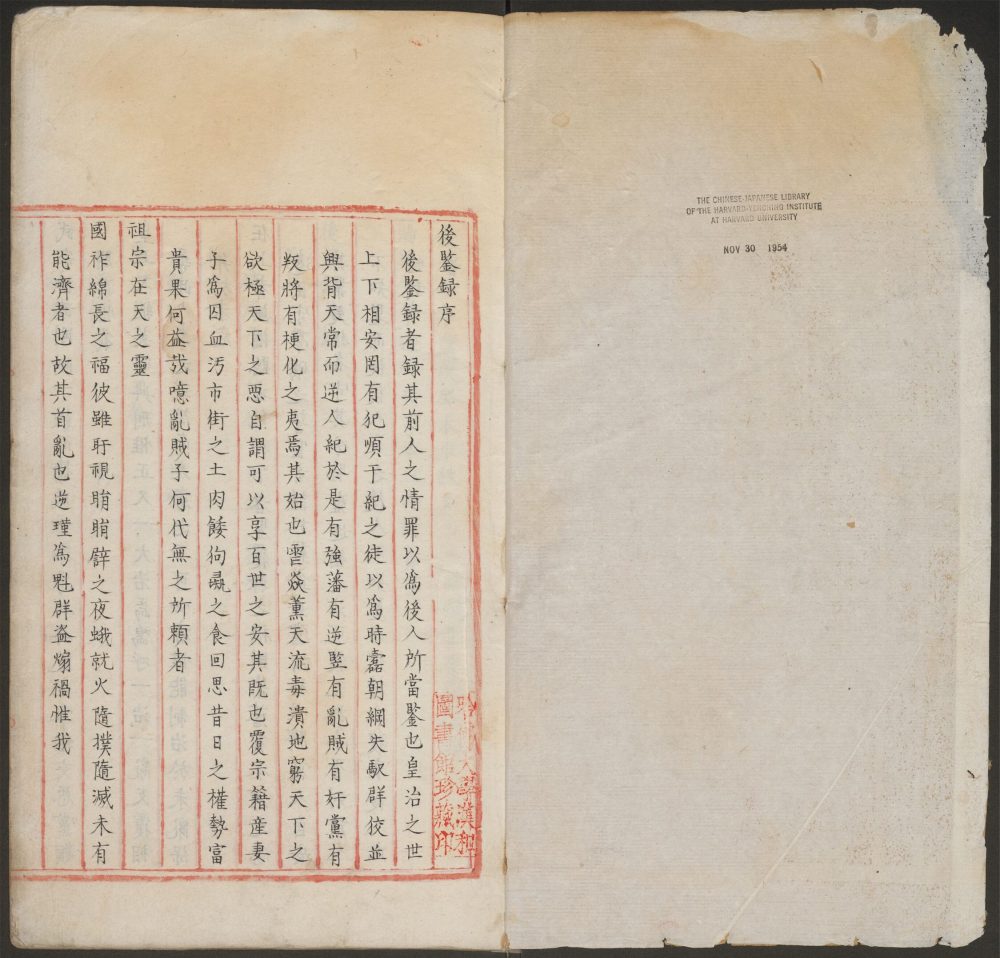 後鍳録序
後鍳録者録其前人之情罪以爲後人所當鍳也皇治之世
上下相安罔有犯順干紀之徒以爲時靄朝綱失馭群佼並
興背天常而逆人紀於是有強藩有逆監有亂賊有奸黨有
叛將有梗化之夷焉其始也雲焱薰天流毒潰地窮天下之
欲極天下之惡自謂可以享百世之安其既也覆宗籍産妻
子爲囚血汚市街之土肉餧狗彘之食回思昔日之權勢富
貴果何益哉噫亂賊子何代無之所頼者
祖宗在天之靈
國祚綿長之福彼雖盱視䀲䀲辟之夜蛾就火隨撲隨滅未有
能濟者也故其首亂也逆瑾爲魁群盗煽禍惟我
大學漢和
圖書館珍藏印
THE CHINESE-JAPANESE LIBRARY
OF THE HARVARD-YENCHING INSTITUTE
AT HARVARD UNIVERSITY
NOV 30 1954